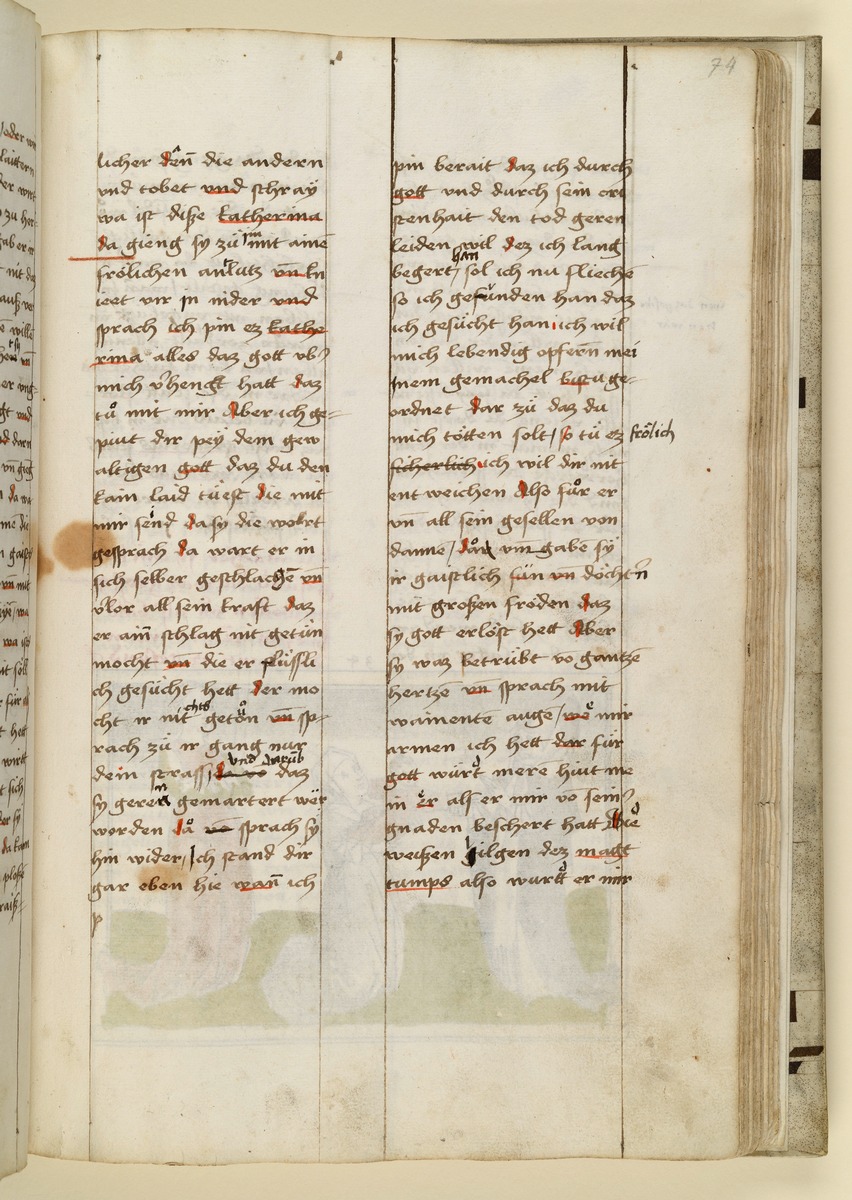 74
licher denn die andern
vnd tobet vnd schray
wa ist diße katherina
da gieng sy zů im mit aine
frölichen antlutz vnd kn
ieet vir in nider vnd
sprach ich pin ez kathe
rina alles daz gott vb
mich v̓hengt hatt daz
tů mit mir Aber ich ge=
piut dir pey dem gew
altigen gott daz du den
kain laid tüest die mit
mir seind da sy die wort
gesprach da wart er in
sich selber geschlagē vn̄
v̓lor all sein kraft daz
er ain̄ schlag nit getün
mocht vn̄ die er flüssli
ch gesücht hett der mo
cht ir nitchtß getůn vn̄ sp=
rach zü ir gang nur
dein strass vnd darūb daz
sy geren gemartert wer
worden da sprach sy
hin wider / Ich stand dir
gar eben hie wan̄ ich
p
pin berait daz ich durch
gott vnd durch sein cri
stenhait den tod geren
leiden wil dez ich lang
begert han sol ich nu fliechē
so ich gefunden han daz
ich gesücht han ich wil
mich lebendig opfern̄ mei
nem gemachel bistu ge=
ordnet dar zü daz du
mich tötten solt / so tü ez frölich
sicherlich ich wil dir nit
entweichen Also fůr er
vn̄ all sein gesellen von
danne / vnn gabe sy
ir gaistlich sün vn döchtn̄
mit großen fröden daz
sy gott erlöst hett Aber
sy waz betrübt vo gantzē
hertzē vn̄ sprach mit
wainentē augē / we mir
armen ich hett dar für
gott würt merē hiut me
in er als er mir vo sein̓
gnaden beschert hatt Die
weißen gilgen dez magt
tumps also wurt er mir